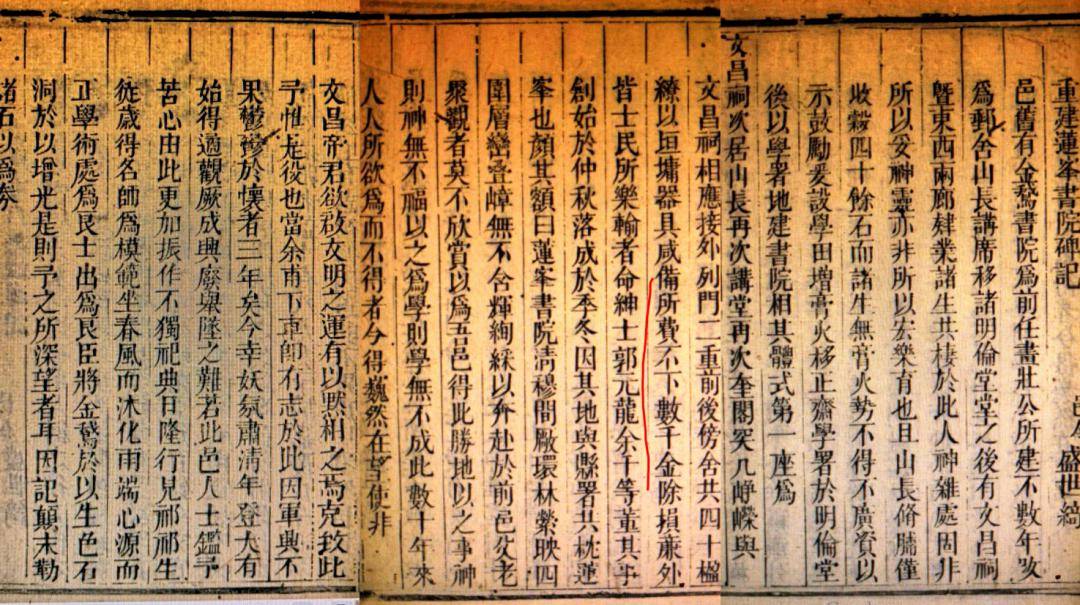 重建蓮峯書院碑記 邑令 盛世綺
邑舊有金鵞書院為前任書壯公所建不數年改
為郵舍山長講席移諸明倫堂堂之後有文昌祠
曁東西兩廊肄業諸生共棲於此人神雜處固非
所以妥神靈亦非所以宏樂育也且山長脩膳僅
收穀四十餘石而諸生無膏火勢不得不廣資以
示鼓勵爰設學田增膏火移正齋學署於明倫堂
後以學署地建書院相其體式第一座為
文昌祠次居山長再次講堂再次奎閣突兀崢嶸與
文昌祠相應接外列門二重前後傍舍共四十楹
繚以垣墉器具咸備所費不下數千金除捐亷外
皆士民所樂輸者命紳士郭元龍余千等董其事
創始於仲秋落成於季冬因其地與縣署共枕蓮
峯也顏其額曰蓮峯書院清穆閒敞環林縈映四
圍層巒疊嶂無不含輝絢綵以奔赴於前邑父老
聚觀者莫不欣賞以為吾邑得此勝地以之事神
則神無不福以之為學則學無不成此數十年來
人人所欲為而不得者今得巍然在望使非
文昌帝君欲啟文明之運有以默相之焉克致此
予惟是役也當余甫下車即有志於此因軍興不
果鬱鬱於懷者三年矣今幸妖氛肅清年登大有
始得適觀厥成興廢舉墜之難若此邑人士鑑予
苦心由此更加振作不獨祀典日隆行見祁祁生
徒歲得名師為模範坐春風而沐化雨端心源而
正學術處為良士出為良臣將金鵞於以生色石
洞於以增光是則予之所深望者耳因記顛末勒
諸石以為劵